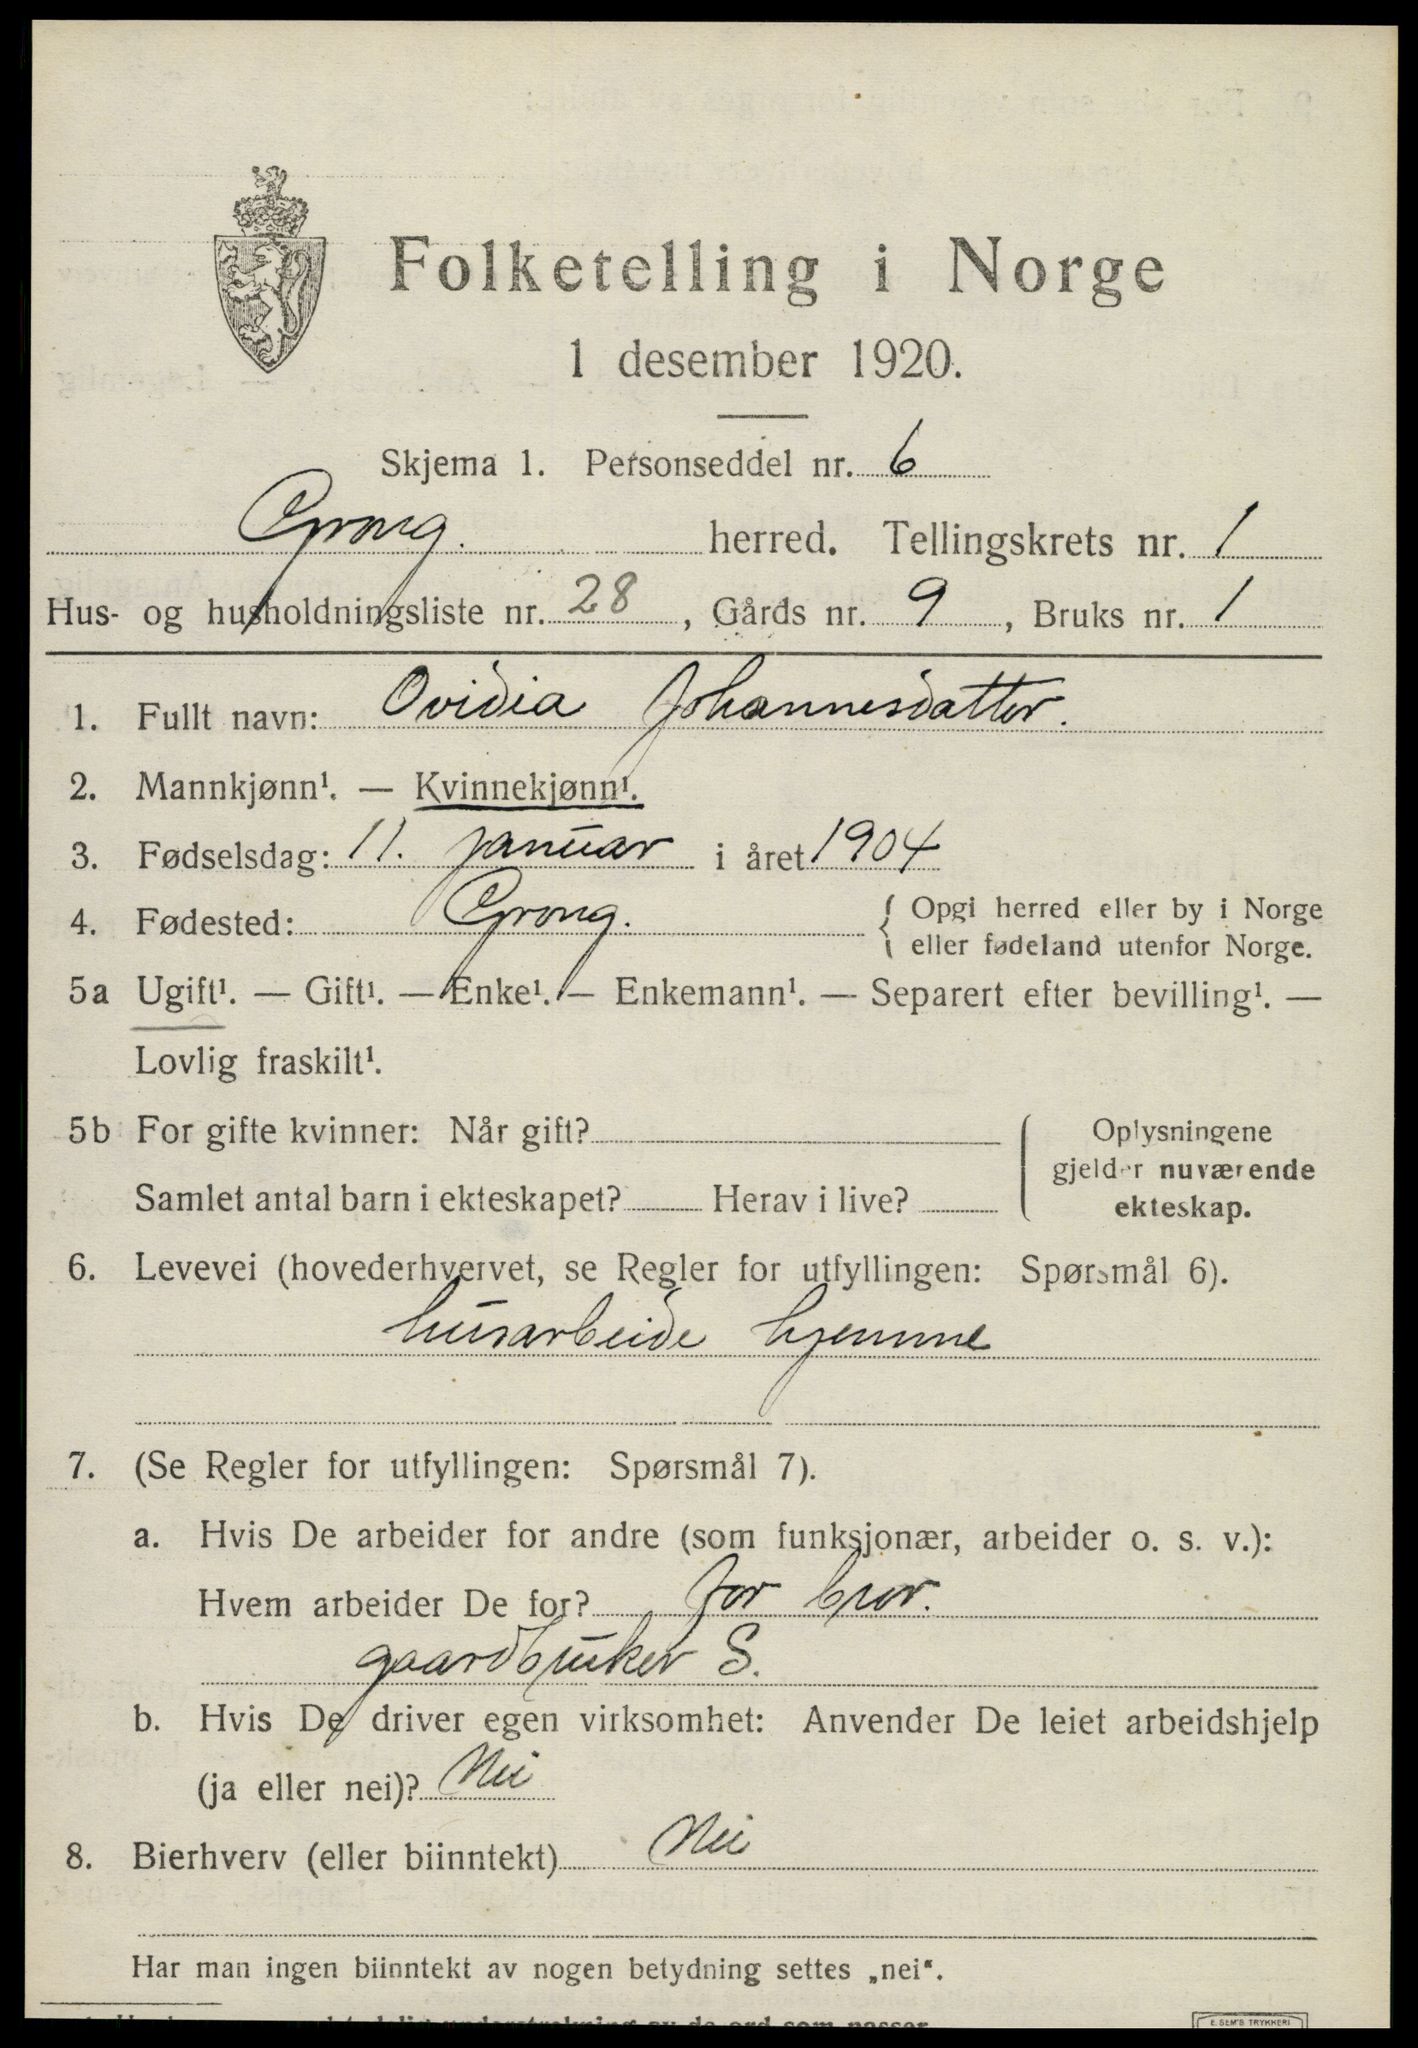 Folketelling i Norge
1 desember 1920.
Skjema 1. Personseddel nr. 6
Grong. herred. Tellingskrets nr. 1
Hus- og husholdningsliste nr. 28, Gårds nr. 9, Bruks nr. 1
1. Fullt navn: Ovidia Johannesdatter.
2. Mannkjønn¹. — Kvinnekjønn¹.
3. Fødselsdag: 11. januar i året 1904
4. Fødested: Grong. { Opgi herred eller by i Norge
eller fødeland utenfor Norge.
5a Ugift¹. — Gift¹. — Enke¹. — Enkemann¹. — Separert efter bevilling¹. —
Lovlig fraskilt¹.
5b For gifte kvinner: Når gift?
Samlet antal barn i ekteskapet? Herav i live?
Oplysningene
gjelder nuværende
ekteskap.
6. Levevei (hovederhvervet, se Regler for utfyllingen: Spørsmål 6).
husarbeide hjemme
7. (Se Regler for utfyllingen: Spørsmål 7).
a. Hvis De arbeider for andre (som funksjonær, arbeider o. s. v.):
Hvem arbeider De for? for bror.
gaardbruker S.
b. Hvis De driver egen virksomhet: Anvender De leiet arbeidshjelp
(ja eller nei)? Nei
8. Bierhverv (eller biinntekt) Nei
Har man ingen biinntekt av nogen betydning settes „nei“.
understrekning av de ord som passer.
E. SEM'S TRYKKERI